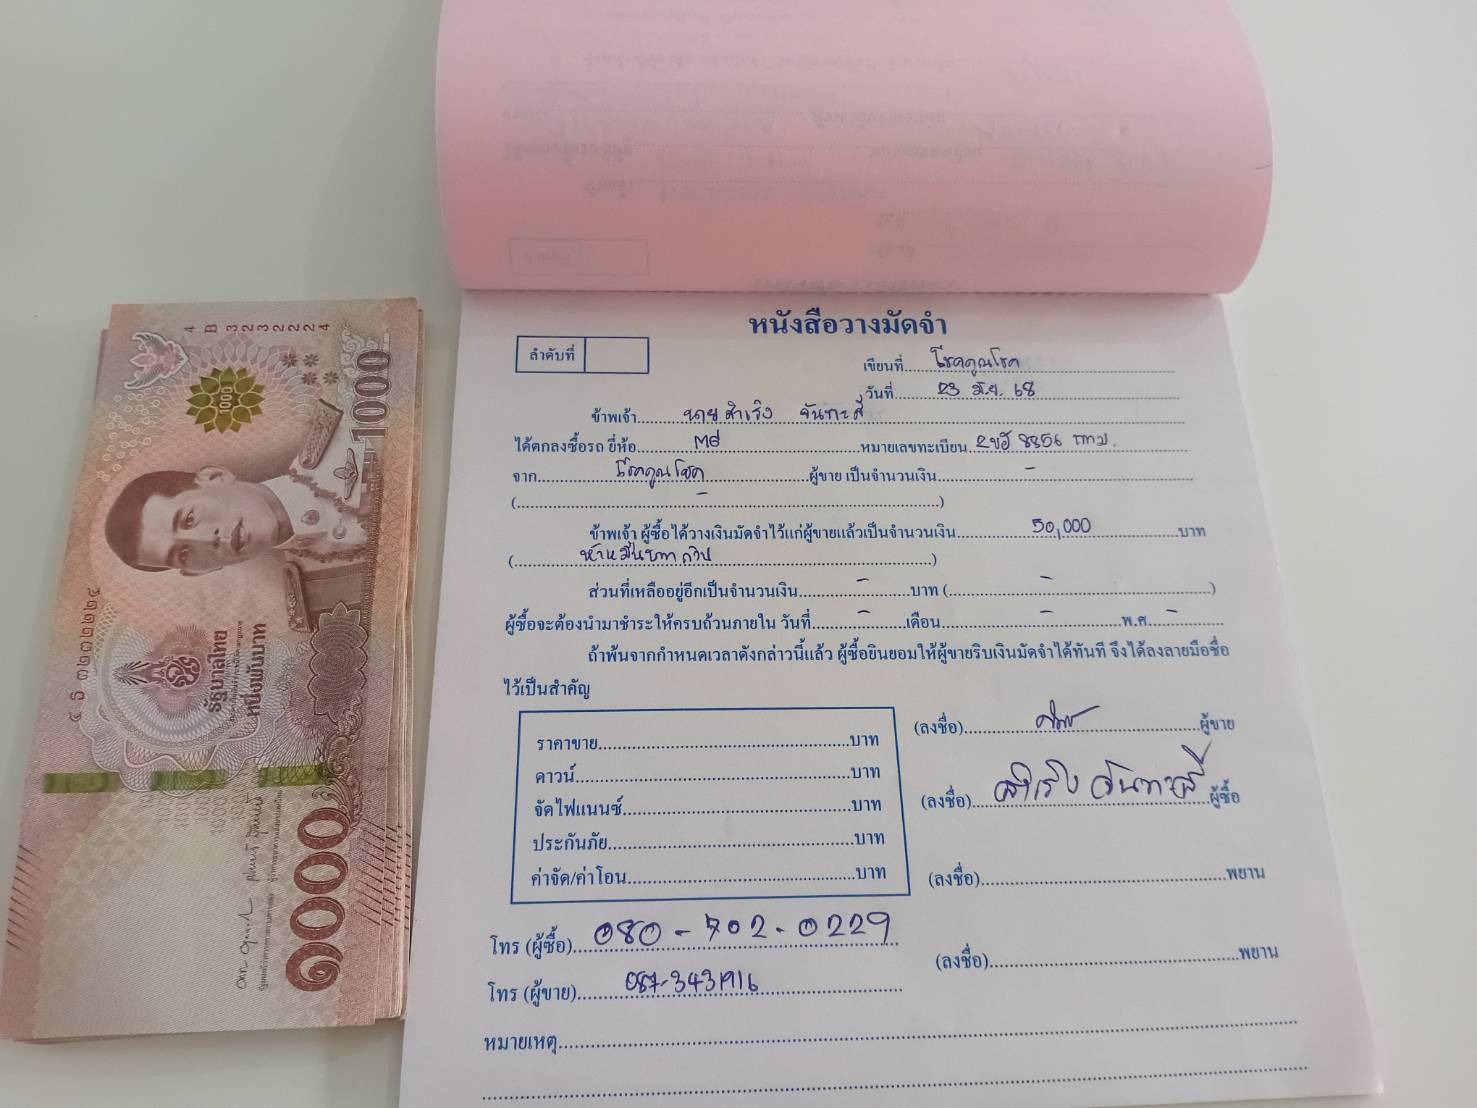 4 B 3232224
1000
1000
๔ ธ ๓๒๓๒๒๒๔
รัฐบาลไทย
หนึ่งพันบาท
๑๐๐๐
หนังสือวางมัดจำ
ลำดับที่
เขียนที่ โชคคูณโชค
วันที่ 23 มิ.ย. 68
ข้าพเจ้า นาย สำเริง จันทะสี
ได้ตกลงซื้อรถ ยี่ห้อ หมายเลขทะเบียน 2ขฮ 8856 กทม.
จาก โชคคูณโชค ผู้ขาย เป็นจำนวนเงิน -
( - )
ข้าพเจ้า ผู้ซื้อได้วางเงินมัดจำไว้แก่ผู้ขายแล้วเป็นจำนวนเงิน 50,000 บาท
( ห้าหมื่นบาทถ้วน )
ส่วนที่เหลืออยู่อีกเป็นจำนวนเงิน - บาท ( - )
ผู้ซื้อจะต้องนำมาชำระให้ครบถ้วนภายใน วันที่ - เดือน - พ.ศ -
ถ้าพ้นจากกำหนดเวลาดังกล่าวนี้แล้ว ผู้ซื้อยินยอมให้ผู้ขายริบเงินมัดจำได้ทันที จึงได้ลงลายมือชื่อ
ไว้เป็นสำคัญ
ราคาขาย บาท
ดาวน์ บาท
จัดไฟแนนซ์ บาท
ประกันภัย บาท
ค่าจัด/ค่าโอน บาท
(ลงชื่อ) ผู้ขาย
(ลงชื่อ) สำเริง จันทะสี ผู้ซื้อ
(ลงชื่อ) พยาน
(ลงชื่อ) พยาน
โทร (ผู้ซื้อ) 080-702-0229
โทร (ผู้ขาย) 087-3431916
หมายเหตุ